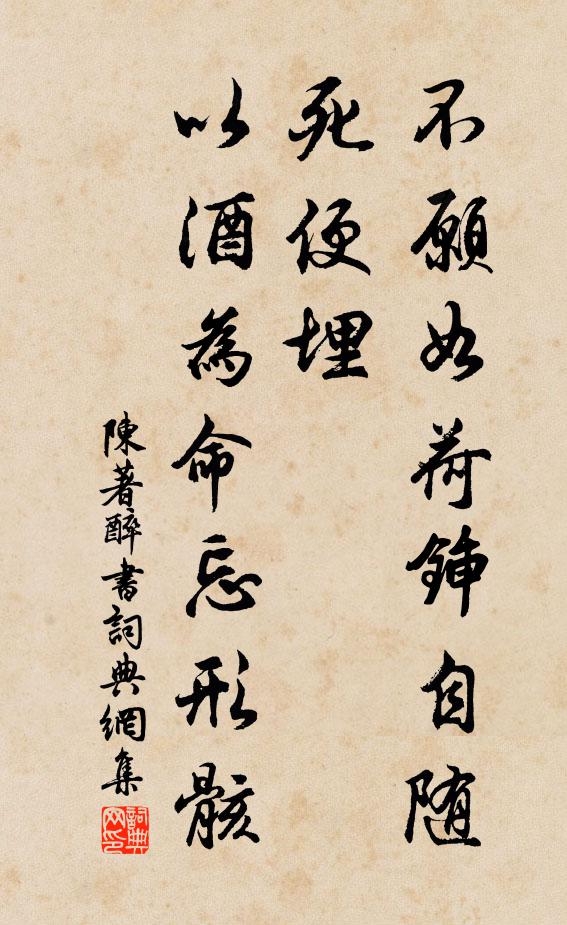 不願如荷鍤自随
死便埋
以酒為命忘形骸
陳著醉書詞典網集
詞典
网印